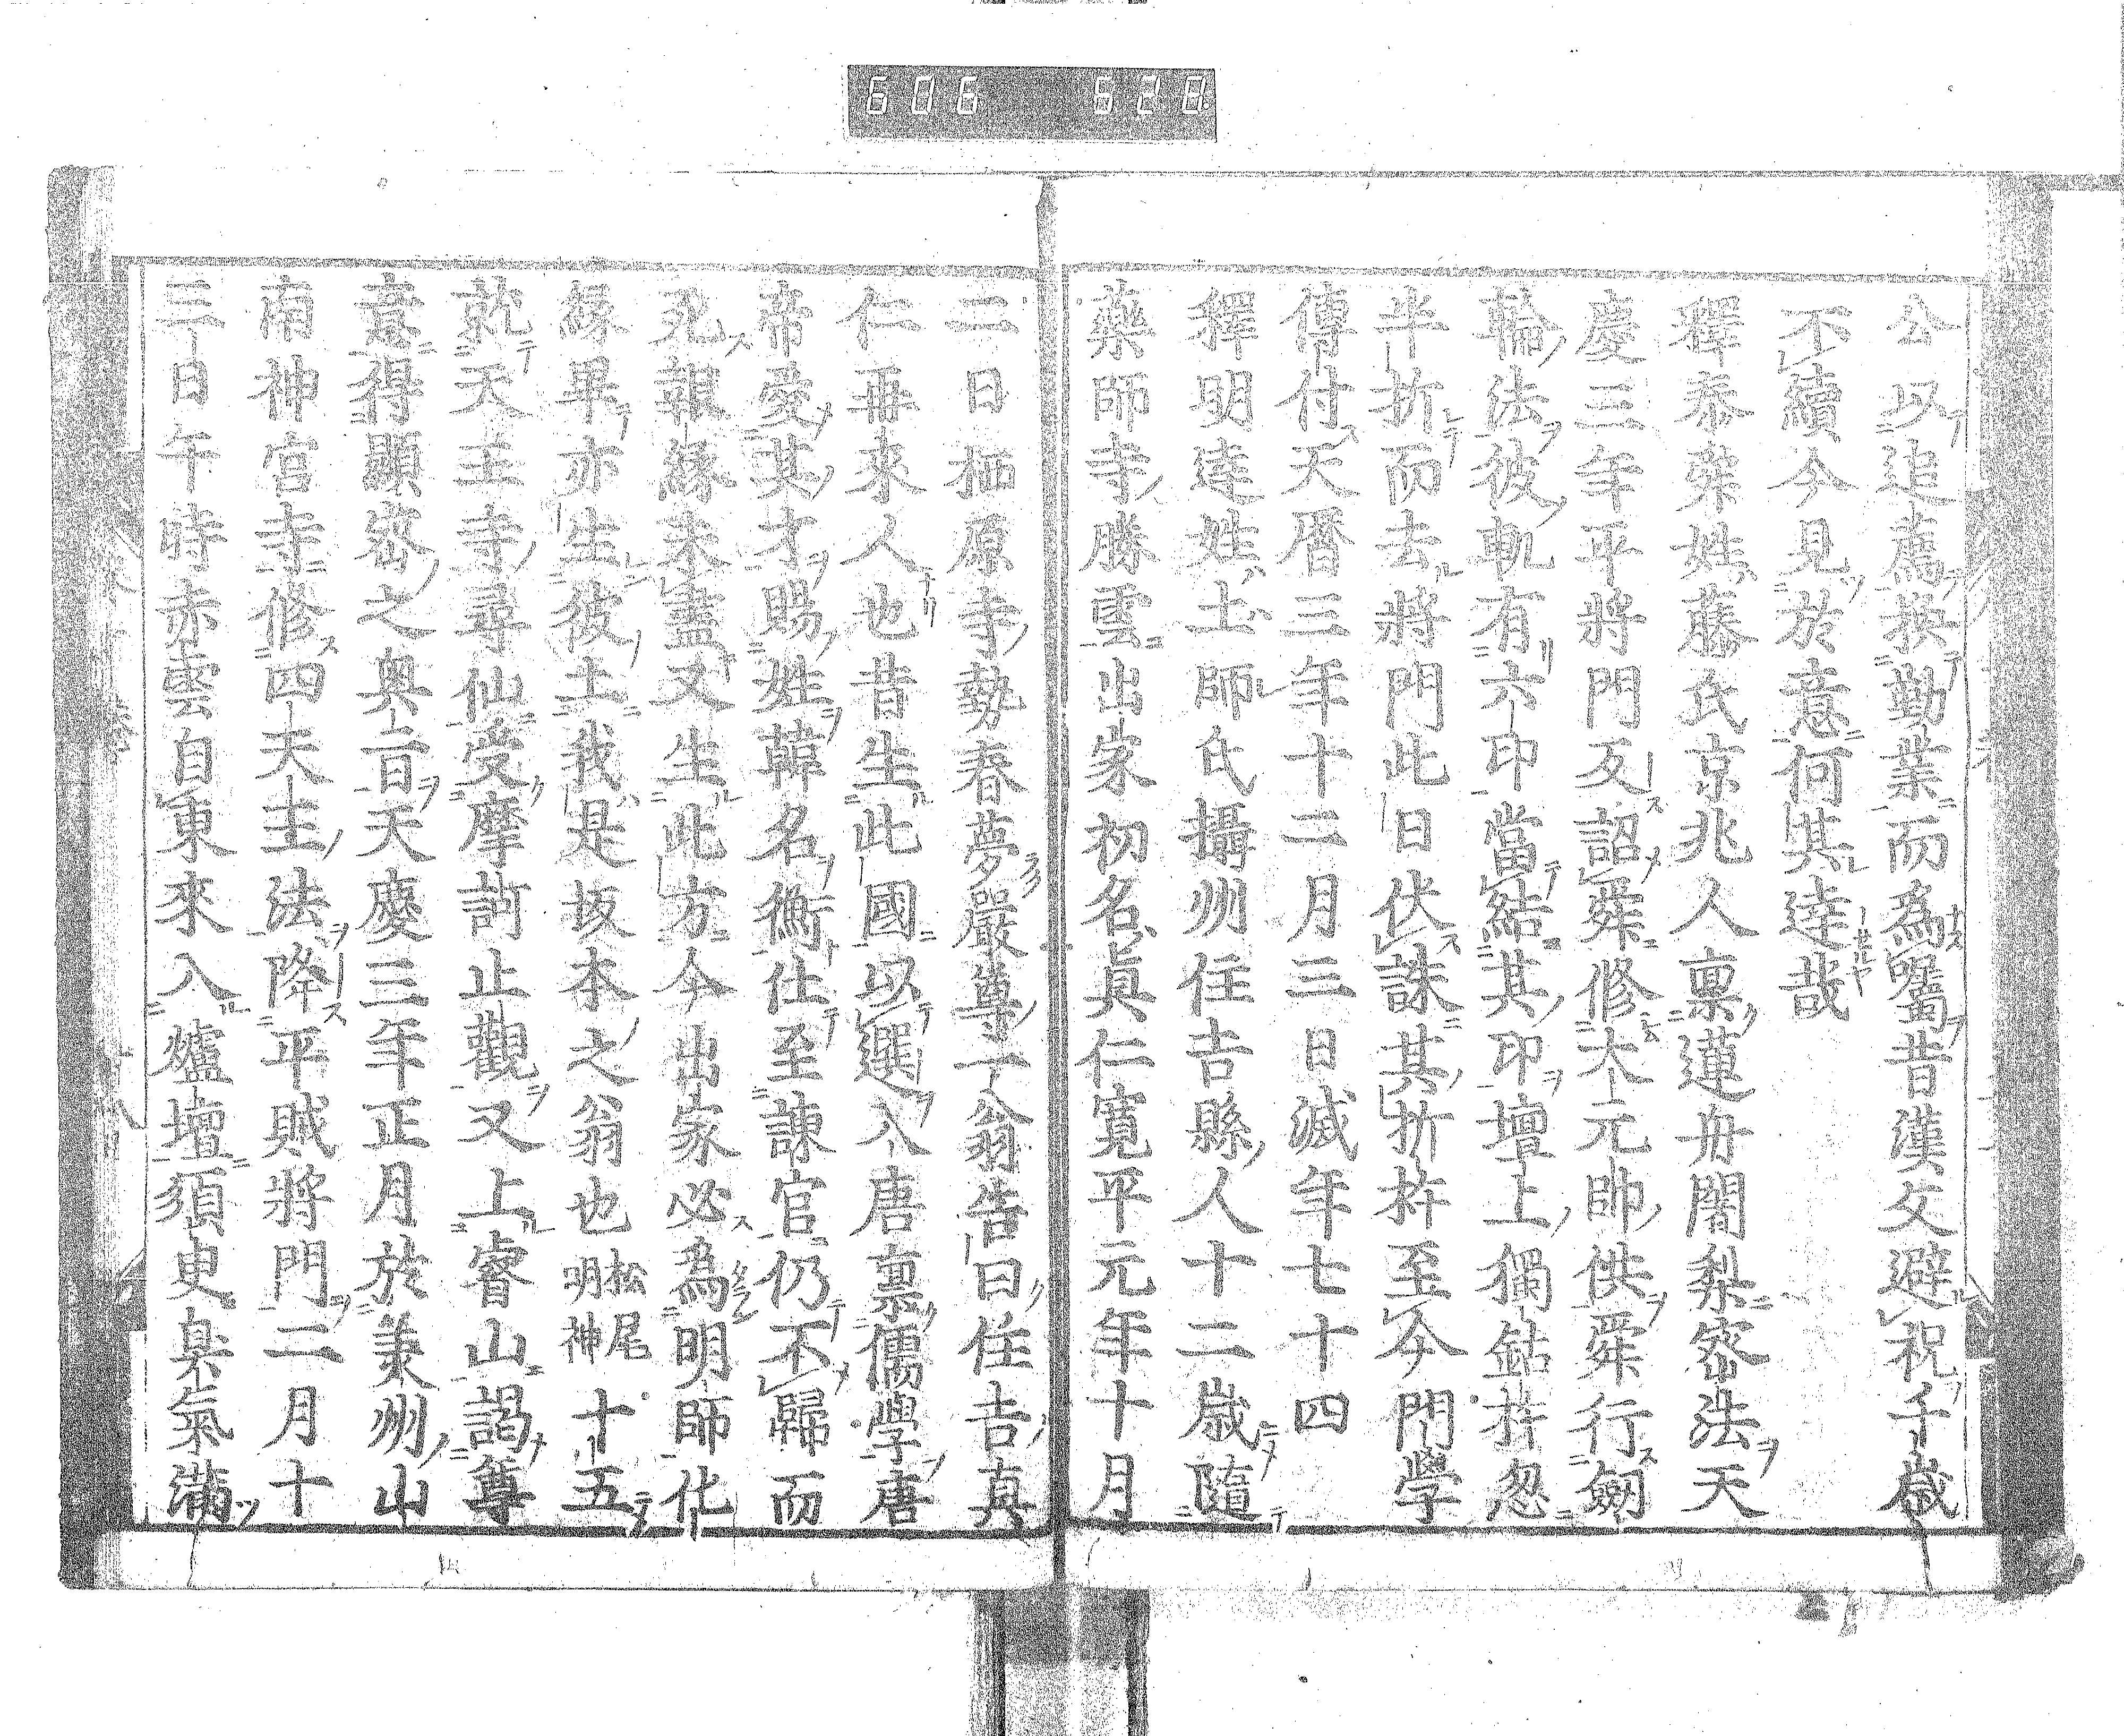 606 628
公以追薦挨勤業而為囑昔漢父避祝千歲
不續今見於意何其達哉
釋泰舜姓藤氏京兆人稟蓮舟闍梨密法天
慶三年平將門反詔舜修太元帥供舜行劔
輪法彼軌有六印當結其印壇上獨鈷杵忽
半折而去將門此日伏誅其折杵至今門學
傳付天曆三年十二月三日滅年七十四
釋明達姓土師氏攝州住吉縣人十二歲隨
藥師寺勝雲出家初名眞仁寬平元年十月
二日栖原寺勢春夢嚴尊一翁告曰住吉真
仁再來人也昔生此國以選入唐稟儒學唐
帝愛其才賜姓韓名衡仕至諫官仍不歸而
死報緣未盡又生此方今出家必為明師化
緣畢亦生彼土我是坂本之翁也松尾明神十五
就天王寺尋仙受摩訶止觀又上睿山謁尊
意得顯密之奧旨天慶三年正月於美州山
南神宮寺修四天王法降平賊將門二月十
三日午時赤雲自東來入爐壇須臾臭氣滿